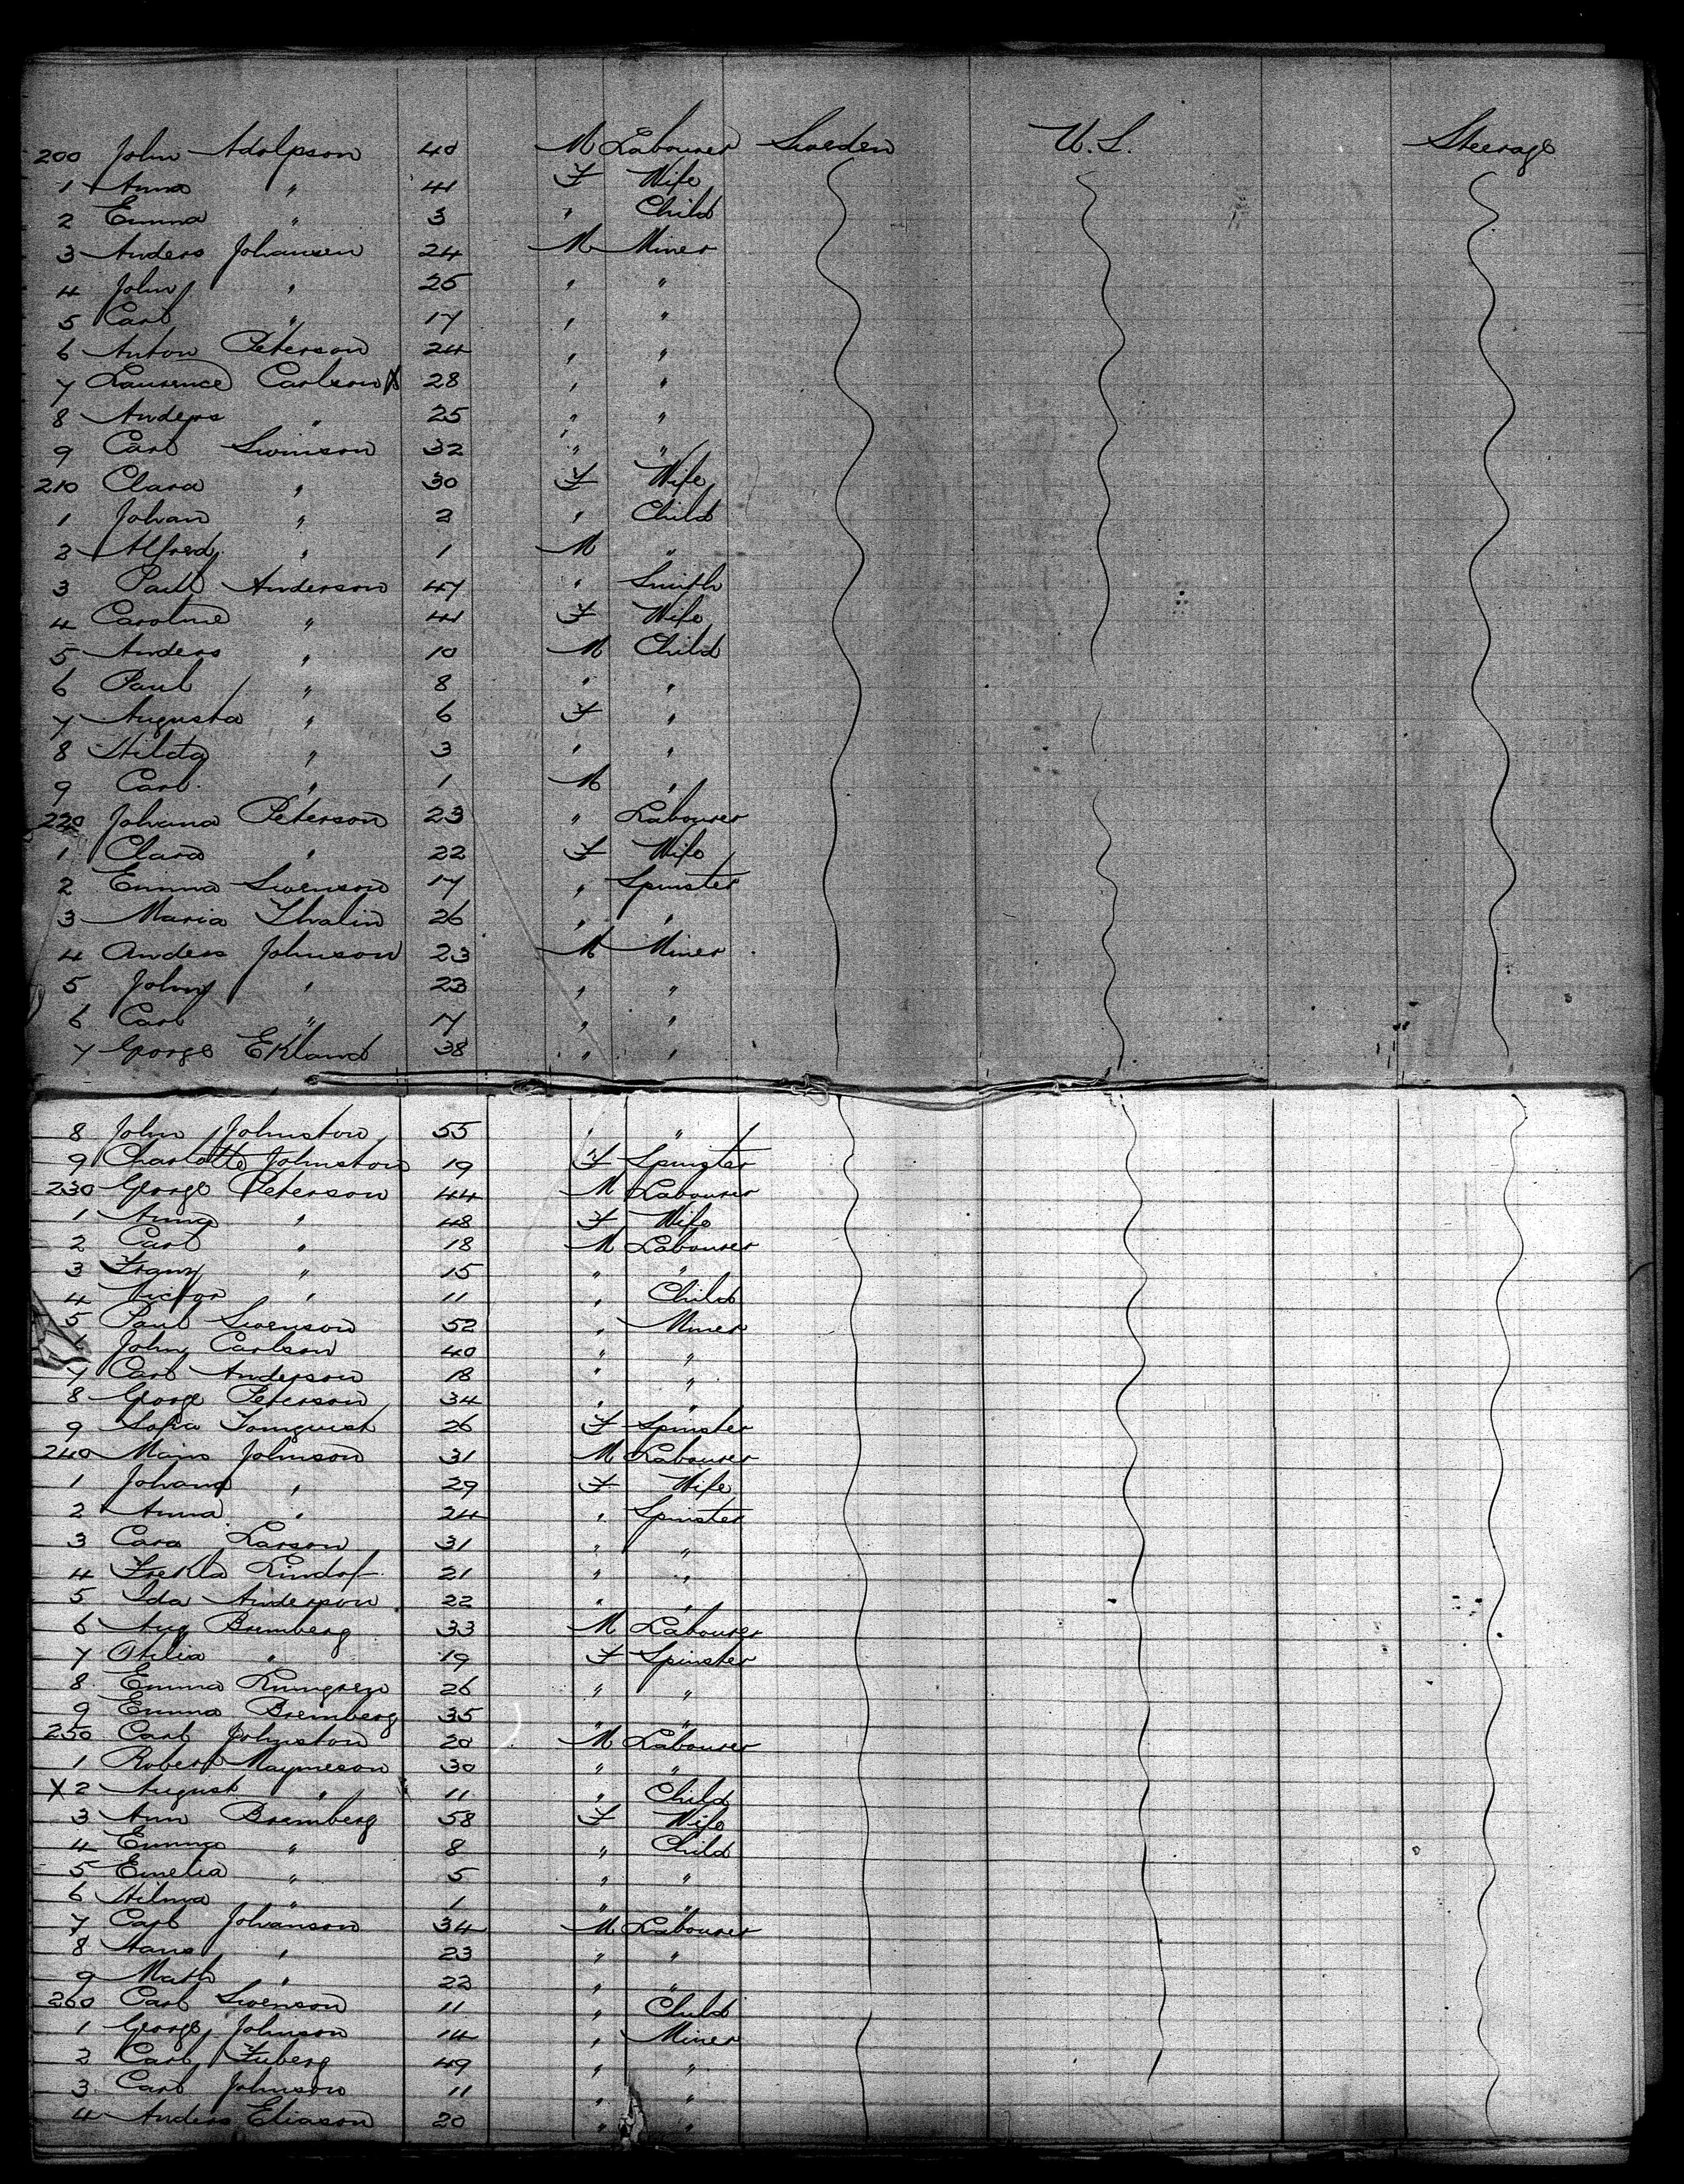 200 John Adolpson 40 M Labourer Sweden U.S. Steerage
1 Anna " 41 F Wife
2 Emma " 3 " Child
3 Anders Johansen 24 M Miner
4 John " 25 " "
5 Carl " 17 " "
6 Anton Peterson 24 " "
7 Laurence Carlson X 28 " "
8 Anders " 25 " "
9 Carl Swinson 32 " "
210 Clara " 30 F Wife
1 Johan " 2 " Child
2 Alfred " 1 M "
3 Paul Anderson 47 " Smith
4 Caroline " 41 F Wife
5 Anders " 10 M Child
6 Paul " 8 " "
7 Augusta " 6 F "
8 Hilda " 3 " "
9 Carl " 1 M "
220 Johana Peterson 23 " Labourer
1 Clara " 22 F Wife
2 Emma Swenson 17 " Spinster
3 Maria Thalin 26 " "
4 Anders Johnson 23 M Miner
5 John " 23 " "
6 Carl " 17 " "
7 George Ekland 38 " "
8 John Johnston 55 " "
9 Charlotte Johnston 19 F Spinster
230 George Peterson 44 M Labourer
1 Anna " 48 F Wife
2 Carl " 18 M Labourer
3 Franz " 15 " "
4 Victor " 11 " Child
5 Paul Swenson 52 " Miner
John Carlson 40 " "
7 Carl Anderson 18 " "
8 George Peterson 34 " "
9 Sofia Tornquist 26 F Spinster
240 Mans Johnson 31 M Labourer
1 Johana " 29 F Wife
2 Anna " 24 " Spinster
3 Cara Larson 31 " "
4 Lindof 21 " "
5 Ida Anderson 22 " "
6 Aug Bremberg 33 M Labourer
7 Otilia " 19 F Spinster
8 Emma 26 " "
9 Emma Bremberg 35 " "
250 Carl Johnston 20 M Labourer
1 Robert Maymeson 30 " "
X 2 August " 11 " Child
3 Ann Bremberg 58 F Wife
4 Emma " 8 " Child
5 Emelia " 5 " "
6 Hilma " 1 " "
7 Carl Johanson 34 M Labourer
8 Hans " 23 " "
9 Math " 22 " "
260 Carl Swenson 11 " Child
1 George Johnson 14 " Miner
2 Carl 49 " "
3 Carl Johnson 11 " "
4 Anders Eliason 20 " "